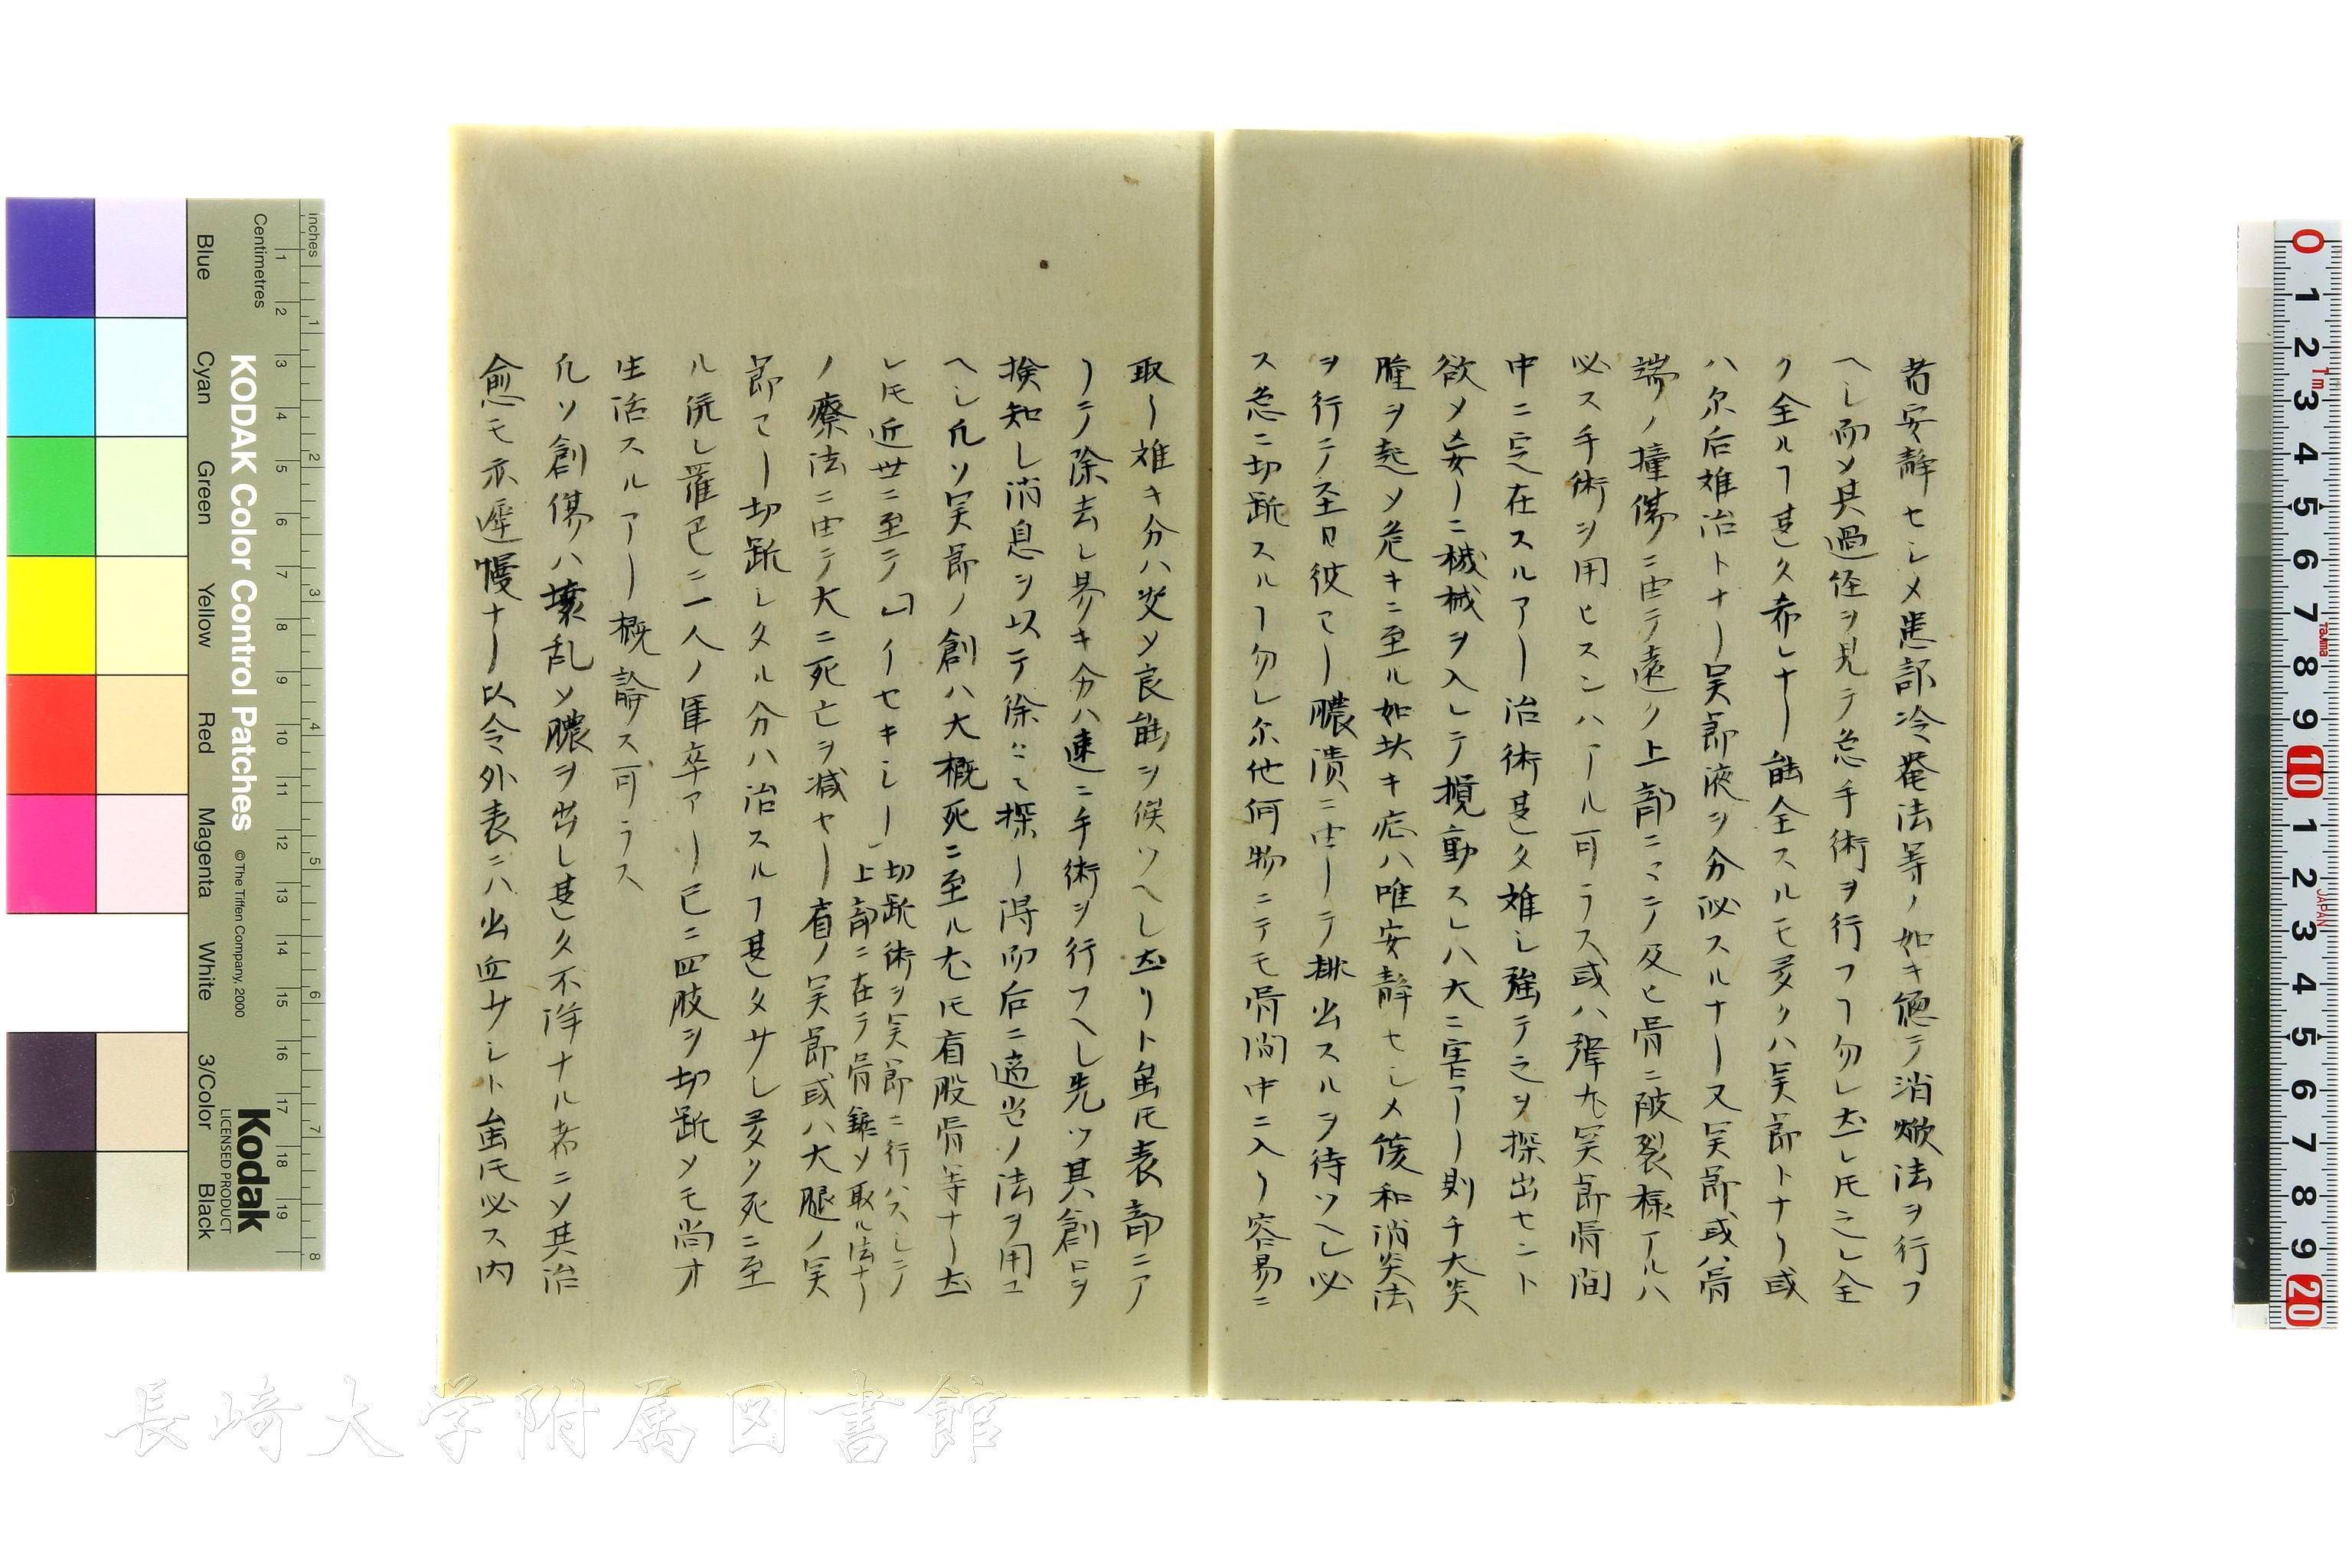 者安静セシメ患部冷罨法等ノ如キ徳テ消焮法ヲ行フ
ヘし而メ其過経ヲ見テ急手術ヲ行フヿ勿レ䒭レ𪜈之レ全
ク全ルヿ甚タ希レナリ能全スルモ多クハ関節トナリ或
ハ尓后難治トナリ関節液ヲ分泌スルナリ又関節或ハ骨
端ノ撞傷ニ由テ遠ク上部ニマテ及ヒ骨ニ破裂様アルハ
必ス手術ヲ用ヒスンハアル可ラス或ハ弾丸関節骨間
中ニ定在スルアリ治術甚タ難し強テ之ヲ探出セント
欲メ妄リニ機械ヲ入レテ攪動スレハ大ニ害アリ則チ大炎
腫ヲ起メ危キニ至ル如此キ症ハ唯安静セしメ後和消炎法
ヲ行テ至日彼マリ膿潰ニ由リテ排出スルヲ待ツヘし必
ス急ニ切断スルヿ勿レ尓他何物ニテモ骨間中ニ入リ容易ニ
取リ難キ分ハ炎メ良能ヲ候ツヘし 虽𪜈表部ニア
リテ除去し昜キ分ハ速ニ手術ヲ行フヘし先ツ其創口ヲ
検知し消息ヲ以テ徐々ニ探リ得而后ニ適当ノ法ヲ用ユ
ヘし凡ソ関節ノ創ハ大概死ニ至ル尤𪜈肩股骨等ナリ
レ𪜈近世ニ至テ イセキシー
切断術ヲ関節ニ行ハスシテ
上部ニ在テ骨鋸メ取ル法ナリ
ノ療法ニ由テ大ニ死亡ヲ減セリ肩ノ関節或ハ大腿ノ関
節マリ切断レタル分ハ治スルヿ甚タサし多ク死ニ至
ル 羅巴ニ一人ノ軍卒アリ已ニ四肢ヲ切断メモ尚才
生活スルアリ概論ス可ラス
凡ソ創傷ハ壊乱メ膿ヲ出し甚タ不浄ナル者ニメ其治
愈モ亦遅慢ナリ以令外表ニハ出血サしト虽𪜈必ス内
KODAK Color Control Patches
©The Tiffen Company, 2000
Kodak
LICENSED PRODUCT
inches
Centimetres
Blue
Cyan
Green
Yellow
Red
Magenta
White
3/Color
Black
長崎大学附属図書館